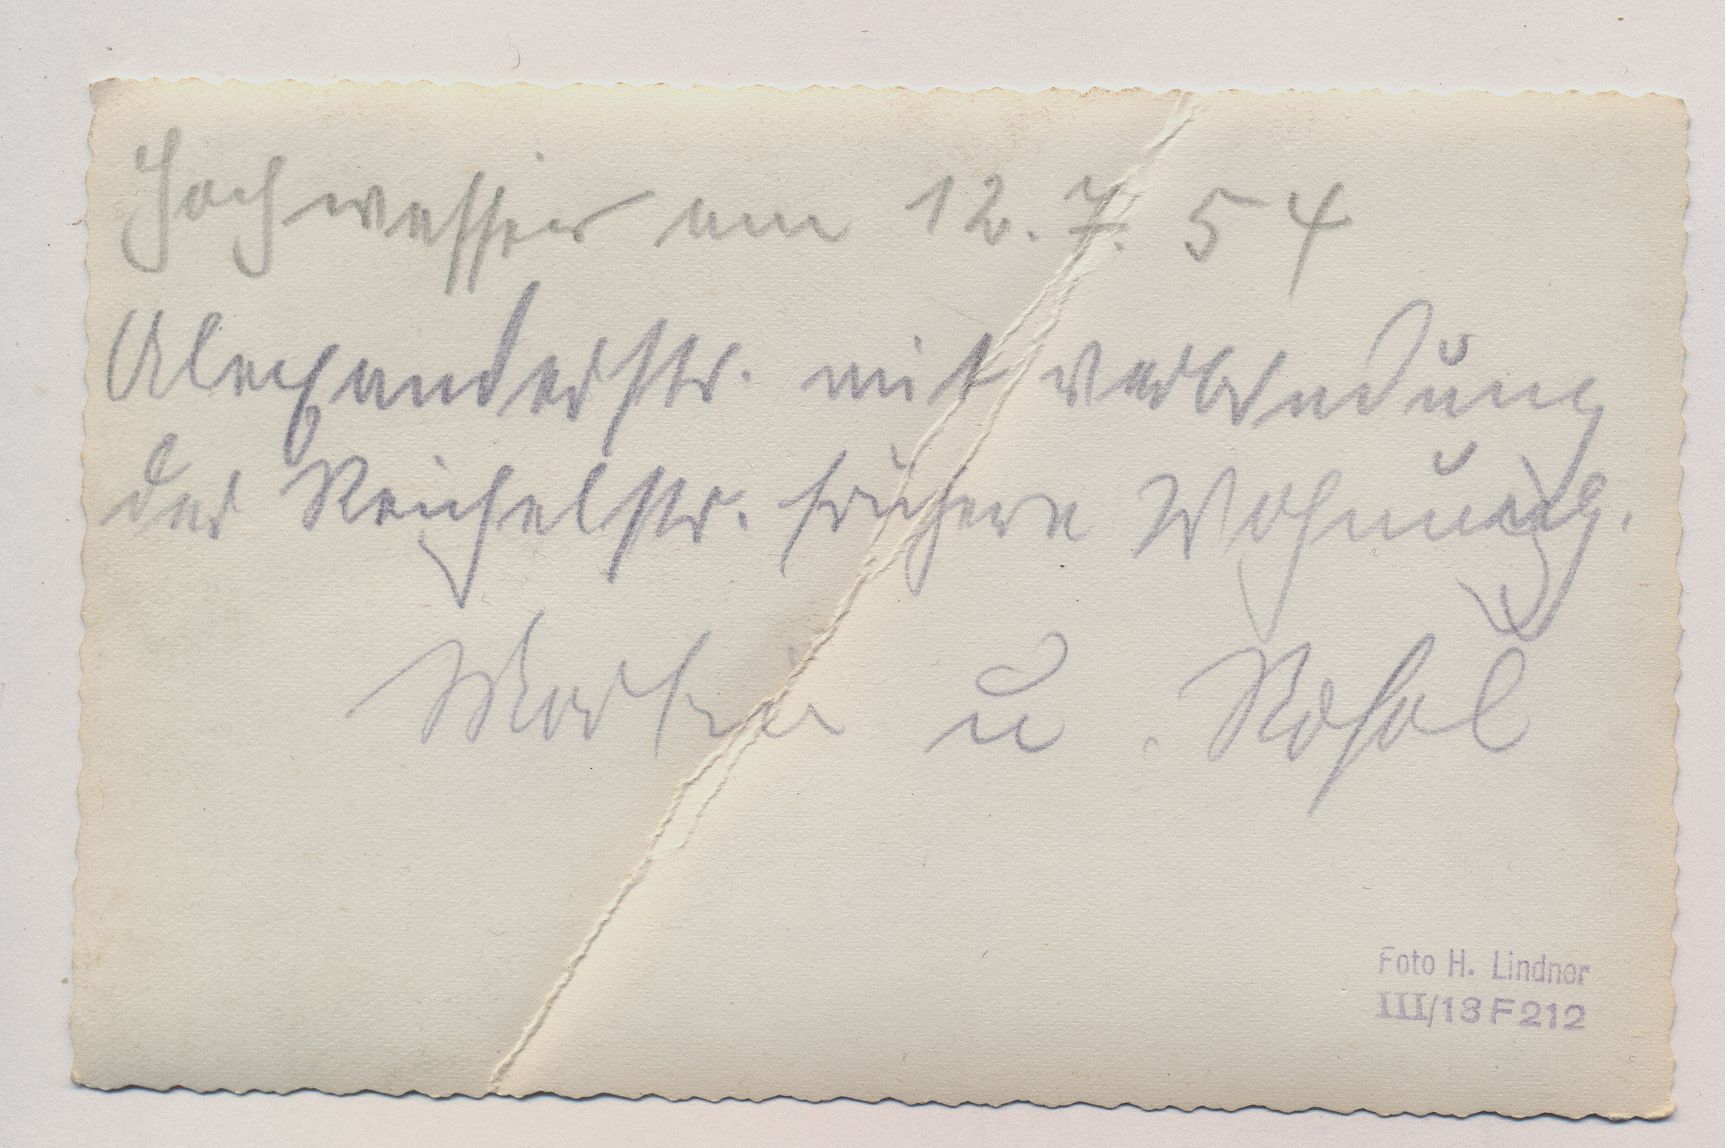 Hochwasser am 12.7.54
Alexanderstr. mit Verbindung
der Reichelstr. frühere Wohnung.
Martin u. Rosel
Foto H. Lindner
III/18 F 212